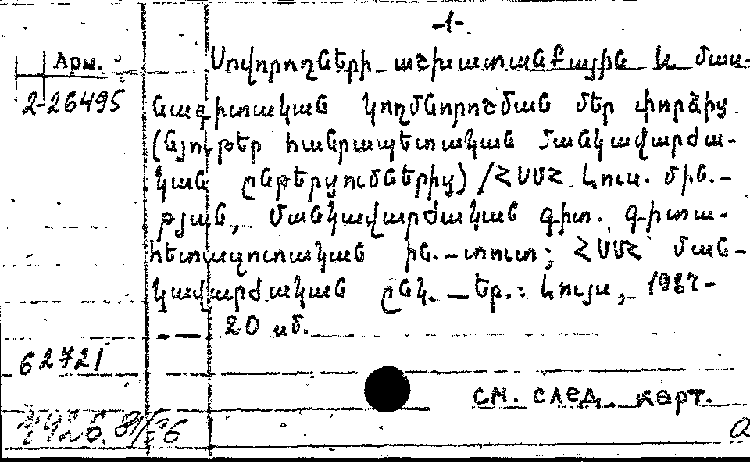 -1-
Арм.
Սովորողների աշխատանքային և մաս-
2-26495 նագիտական կողմնորոշման մեր փորձից
(Նյութեր հանրապետական մանկավարժա-
կան ընթերցումներից) /ՀՍՍՀ Լուս. մին.-
թյան, Մանկավարժական գիտ. գիտա-
հետազոտական ին.-տուտ; ՀՍՍՀ ման-
կավարժական ընկ. _Եր.: Լույս, 1987-
20 սմ.
62721
см. след. карт.